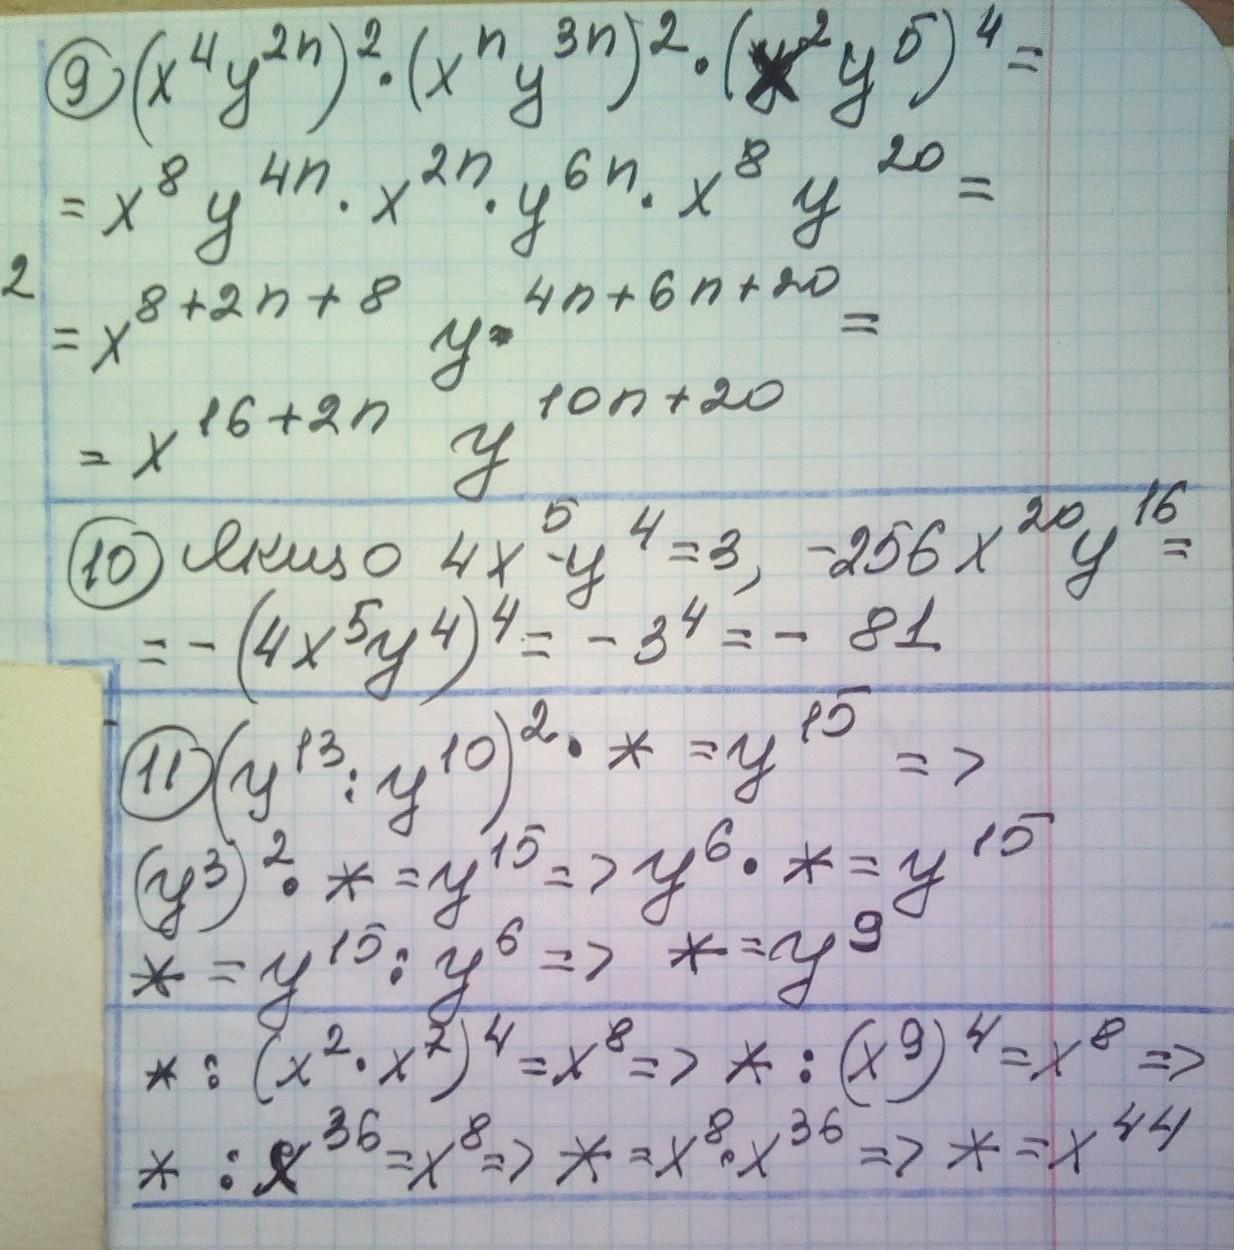 9) (x⁴y²ⁿ)² · (xⁿy³ⁿ)² · (x²y⁵)⁴ =
= x⁸ y⁴ⁿ · x²ⁿ · y⁶ⁿ · x⁸ y²⁰ =
2
= x⁸⁺²ⁿ⁺⁸ y⁴ⁿ⁺⁶ⁿ⁺²⁰ =
= x¹⁶⁺²ⁿ y¹⁰ⁿ⁺²⁰
10) Якщо 4x⁵·y⁴ = 3, -256x²⁰y¹⁶ =
= -(4x⁵y⁴)⁴ = -3⁴ = - 81
11) (y¹³ : y¹⁰)² · * = y¹⁵ =>
(y³)² · * = y¹⁵ => y⁶ · * = y¹⁵
* = y¹⁵ : y⁶ => * = y⁹
* : (x² · x⁷)⁴ = x⁸ => * : (x⁹)⁴ = x⁸ =>
* : x³⁶ = x⁸ => * = x⁸ · x³⁶ => * = x⁴⁴